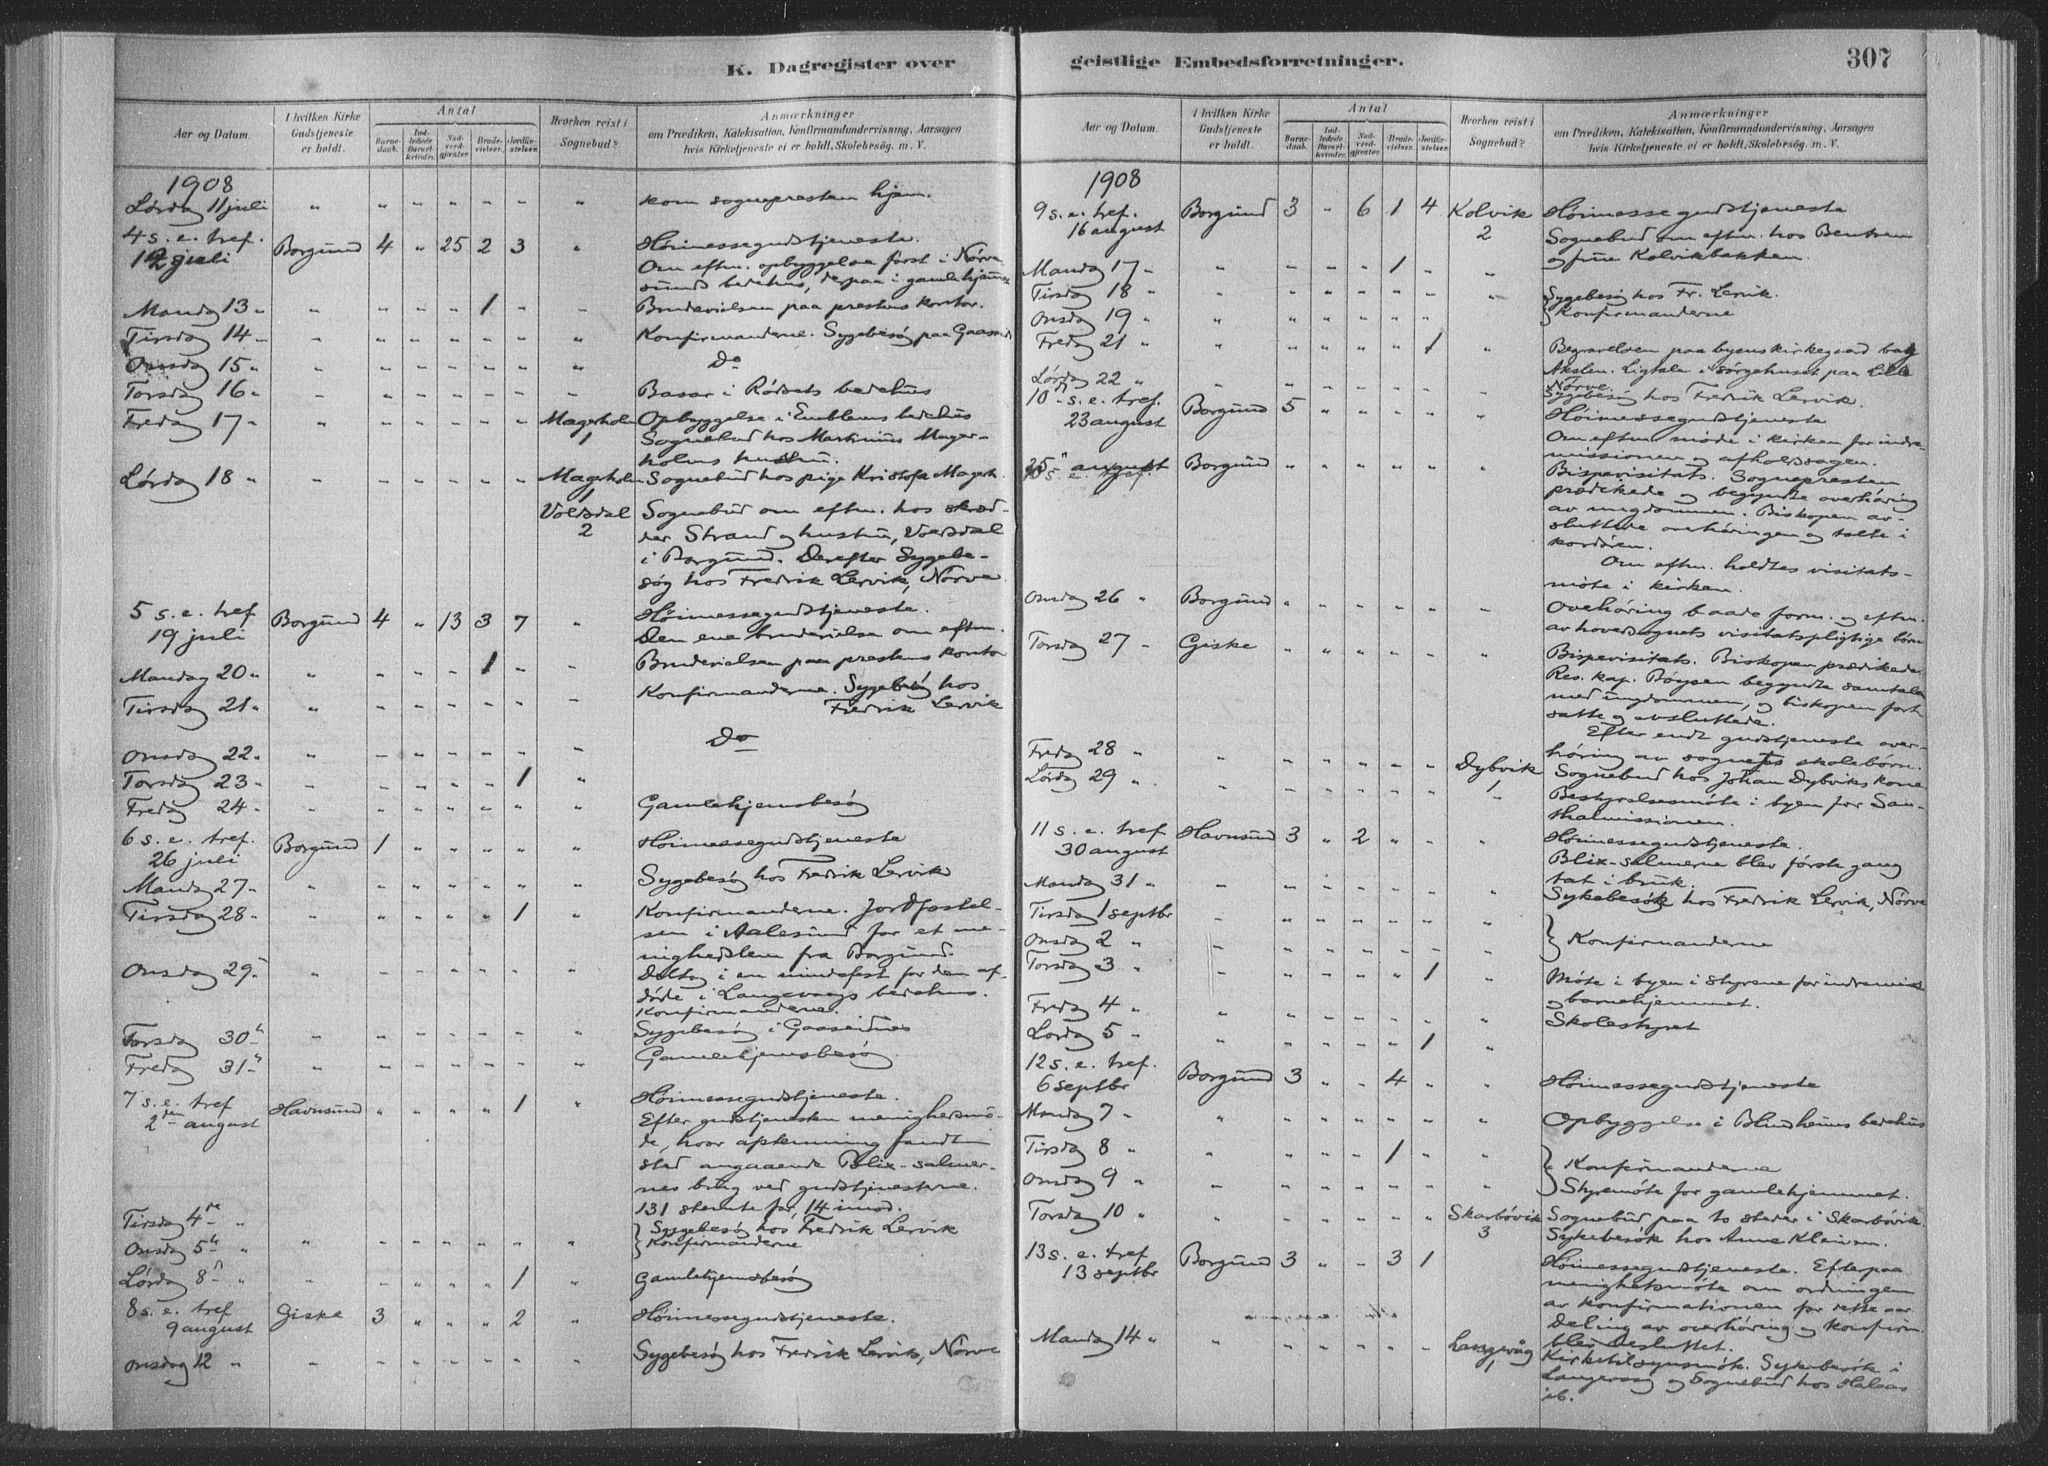 K. Dagregister over
Aar og Datum.
I hvilken Kirke Gudstjeneste er holdt.
Antal
Barnedaab.
Indledede Barselkvinder.
Nadverdgjester
Brudevielser.
Jordfæstelser.
Hvorhen reist i Sognebud?
Anmærkninger
om Prædiken, Katekisation, Konfirmandundervisning, Aarsagen
hvis Kirketjeneste ei er holdt, Skolebesög. m. V.
1908
Lørdag 11 juli " " " " " " " kom sognepresten hjem.
4 s. e. tref.
12 juli Borgund 4 " 25 2 3 " Höimessegudstjeneste.
Om eftm. opbyggelse først i Nørve
sund bedehus, derpaa i gamlehjemmet
Mandag 13 " " " " " " 1 " " Brudevielsen paa prestens kontor.
Tirsdag 14 " " " " " " " " " Konfirmanderne. Sygebesøg paa Gaaseid
Onsdag 15 " " " " " " " " " Do
Torsdag 16 " " " " " " " " " Basar i Rødsets bedehus
Fredag 17 " " " " " " " " Magerholm 1 Opbyggelse i Emblems bedehus
Sognebud hos Martinus Mager-
holms hustru.
Lørdag 18 " " " " " " " " Magerholm 1 Sognebud hos pige Kristofa Magerh.
Volsdal 2 Sognebud om eftm. hos skræd-
der Strand og hustru, Volsdal
i Borgund. Derefter Sygebe-
søg hos Fredrik Lervik, Nørve.
5 s. e. tref
19 juli Borgund 4 " 13 3 7 " Höimessegudstjeneste.
Den ene brudevielse om eftm.
Mandag 20 " " " " " 1 " " Brudevielsen paa prestens kontor
Tirsdag 21 " " " " " " " " Konfirmanderne. Sygebesøg hos
Fredrik Lervik
Onsdag 22 " " " " " " " " Do
Torsdag 23 " " " " " " 1 "
Fredag 24 " " " " " " " " Gamlehjemsbesøg
6 s. e. tref.
26 juli Borgund 1 " " " " " Höimessegudstjeneste
Mandag 27 " " " " " " " " Sygebesøg hos Fredrik Lervik
Tirsdag 28 " " " " " " 1 " Konfirmanderne. Jordfæstel-
sen i Aalesund for et me-
nighedslem fra Borgund.
Onsdag 29 " " " " " " " " Deltog i en mindefest for den af-
døde i Langevaags bedehus.
Konfirmanderne.
Torsdag 30 " " " " " " " " Sygebesøg i Gaaseidnes
Fredag 31 " " " " " " " " Gamlehjemsbesøg
7 s. e. tref
2den august Havnsund " " " " 1 " Höimessegudstjeneste.
Efter gudstjenesten menighedsmø-
de, hvor afstemning fandt
sted angaaende Blix-salmer-
nes brug ved gudstjenesterne.
131 stemte for, 14 imod.
Tirsdag 4de " " " " " " " " } Sygebesøg hos Fredrik Lervik
Onsdag 5te " " " " " " " " } Konfirmanderne
Lørdag 8de " " " " " " 1 " Gamlehjemsbesøg
8 s. e. tref
9 august Giske 3 " " " 2 " Höimessegudstjeneste.
Onsdag 12 " " " " " " " " Sygebesøg hos Fredrik Lervik, Nørve
geistlige Embedsforretninger.
307
Aar og Datum.
I hvilken Kirke Gudstjeneste er holdt.
Antal
Barnedaab.
Indledede Barselkvinder.
Nadverdgjester.
Brudevielser.
Jordfæstelser.
Hvorhen reist i Sognebud?
Anmærkninger
om Prædiken, Katekisation, Konfirmandundervisning, Aarsagen
hvis Kirketjeneste ei er holdt, Skolebesög. m. V.
1908
9 s. e. tref.
16 august Borgund 3 " 6 1 4 Kolvik 2 Höimessegudstjeneste
Sognebud om eftm. hos Bentsen
og frue Kolvikbakken.
Mandag 17 " " " " " 1 " "
Tirsdag 18 " " " " " " " " } Sygebesøg hos Fr. Lervik.
Onsdag 19 " " " " " " " } Konfirmanderne
Fredag 21 " " " " " 1 " Begravelsen paa byens kirkegaard bag
Akslen. Ligtale i sørgehuset paa Lille
Nørve.
Lørdag 22 " " " " " " " " Sygebesøg hos Fredrik Lervik.
10 s. e. tref.
23 august Borgund 5 " " " " " Höimessegudstjeneste
Om eftm møde i kirken for indre-
missionen og afholdssagen.
25 august Borgund " " " " " " Bispevisitats. Sognepresten
prædikede og begyndte overhøring
av ungdommen. Biskopen av-
sluttede overhøringen og talte i
kordøren.
Om eftm. holdtes visitats-
møte i kirken.
Onsdag 26 " Borgund " " " " " " Overhøring baade form. og eftm.
av hovedsognets visitatspligtige børn
Torsdag 27 " Giske " " " " " " Bispevisitats. Biskopen prædikede.
Res. kap. Bøysen begyndte samtalen
med ungdommen, og biskopen fort-
satte og avsluttede.
Efter endt gudstjeneste over-
høring av sognets skolebørn.
Fredag 28 " " " " " " "
Lørdag 29 " " " " " " " Dybvik 1 Sognebud hos Johan Dybviks kone
Bestyrelsesmøte i byen for San-
thalmissionen.
11 s. e. tref
30 august Havnsund 3 " 2 " " " Höimessegudstjeneste.
Blix-salmerne blev første gang
tat i bruk.
Mandag 31 " " " " " " " " Sykebesøk hos Fredrik Lervik, Nørve
Tirsdag 1 septbr " " " " " " "
Onsdag 2 " " " " " " " " } Konfirmanderne
Torsdag 3 " " " " " " 1 " Møte i byen i styrene for indremis
og barnehjemmet.
Fredag 4 " " " " " " " " Skolestyret
Lørdag 5 " " " " " " 1 "
12 s. e. tref.
6 septbr Borgund 3 " " 4 " " Höimessegudstjeneste
Mandag 7 " " " " " " " " Opbyggelse i Blindheims bedehus
Tirsdag 8 " " " " " 1 " " } Konfirmanderne
Onsdag 9 " " " " " " " " } Styremøte for gamlehjemmet.
Torsdag 10 " " " " " " " Skarbøvik 3 Sognebud paa to steder i Skarbøvik.
Sykebesøk hos Anne Kleiven.
13 s. e. tref
13 septbr Borgund 3 " " 3 1 Höimessegudstjeneste. Efterpaa
menighetsmøte om ordningen
av konfirmationen for dette aar
Deling av overhøring og konfirm.
blev besluttet.
Mandag 14 " " " " " " " Langevåg 1 Kirketilsynsmøte. Sykebesøk i
Langevaag og Sognebud hos Halsaas
ib.